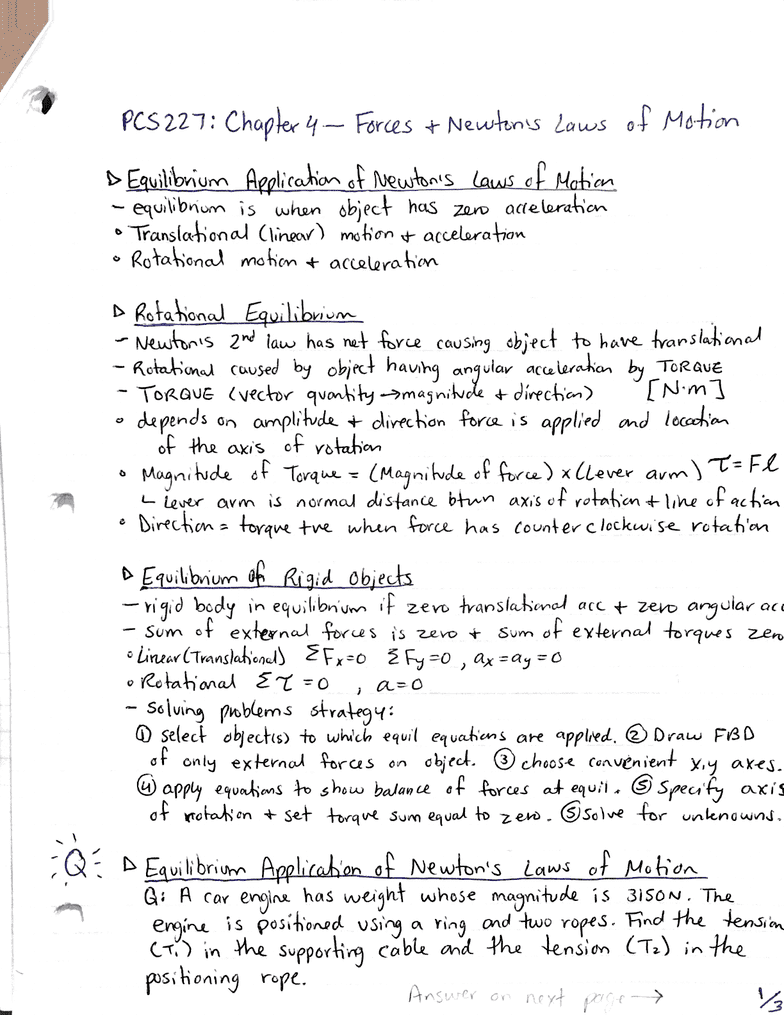 PCS227: Chapter 4 — Forces + Newton's Laws of Motion
▷ Equilibrium Application of Newton's Laws of Motion
- equilibrium is when object has zero acceleration
• Translational (linear) motion + acceleration
• Rotational motion + acceleration
▷ Rotational Equilibrium
- Newton's 2nd law has net force causing object to have translational
- Rotational caused by object having angular acceleration by TORQUE
- TORQUE (vector quantity → magnitude + direction) [N·m]
• depends on amplitude + direction force is applied and location
of the axis of rotation
• Magnitude of Torque = (Magnitude of force) x (Lever arm) τ = Fl
└ Lever arm is normal distance btwn axis of rotation + line of action
• Direction = torque +ve when force has counterclockwise rotation
▷ Equilibrium of Rigid Objects
- rigid body in equilibrium if zero translational acc + zero angular acc
- sum of external forces is zero + sum of external torques zero
• Linear (Translational) ΣFx=0 ΣFy=0, ax=ay=0
• Rotational Στ=0, a=0
- Solving problems strategy:
① select object(s) to which equil equations are applied. ② Draw FBD
of only external forces on object. ③ choose convenient x,y axes.
④ apply equations to show balance of forces at equil. ⑤ Specify axis
of rotation + set torque sum equal to zero. ⑤ Solve for unknowns.
Q ▷ Equilibrium Application of Newton's Laws of Motion
Q: A car engine has weight whose magnitude is 3150N. The
engine is positioned using a ring and two ropes. Find the tension
(T₁) in the supporting cable and the tension (T₂) in the
positioning rope.
Answer on next page →
1/3